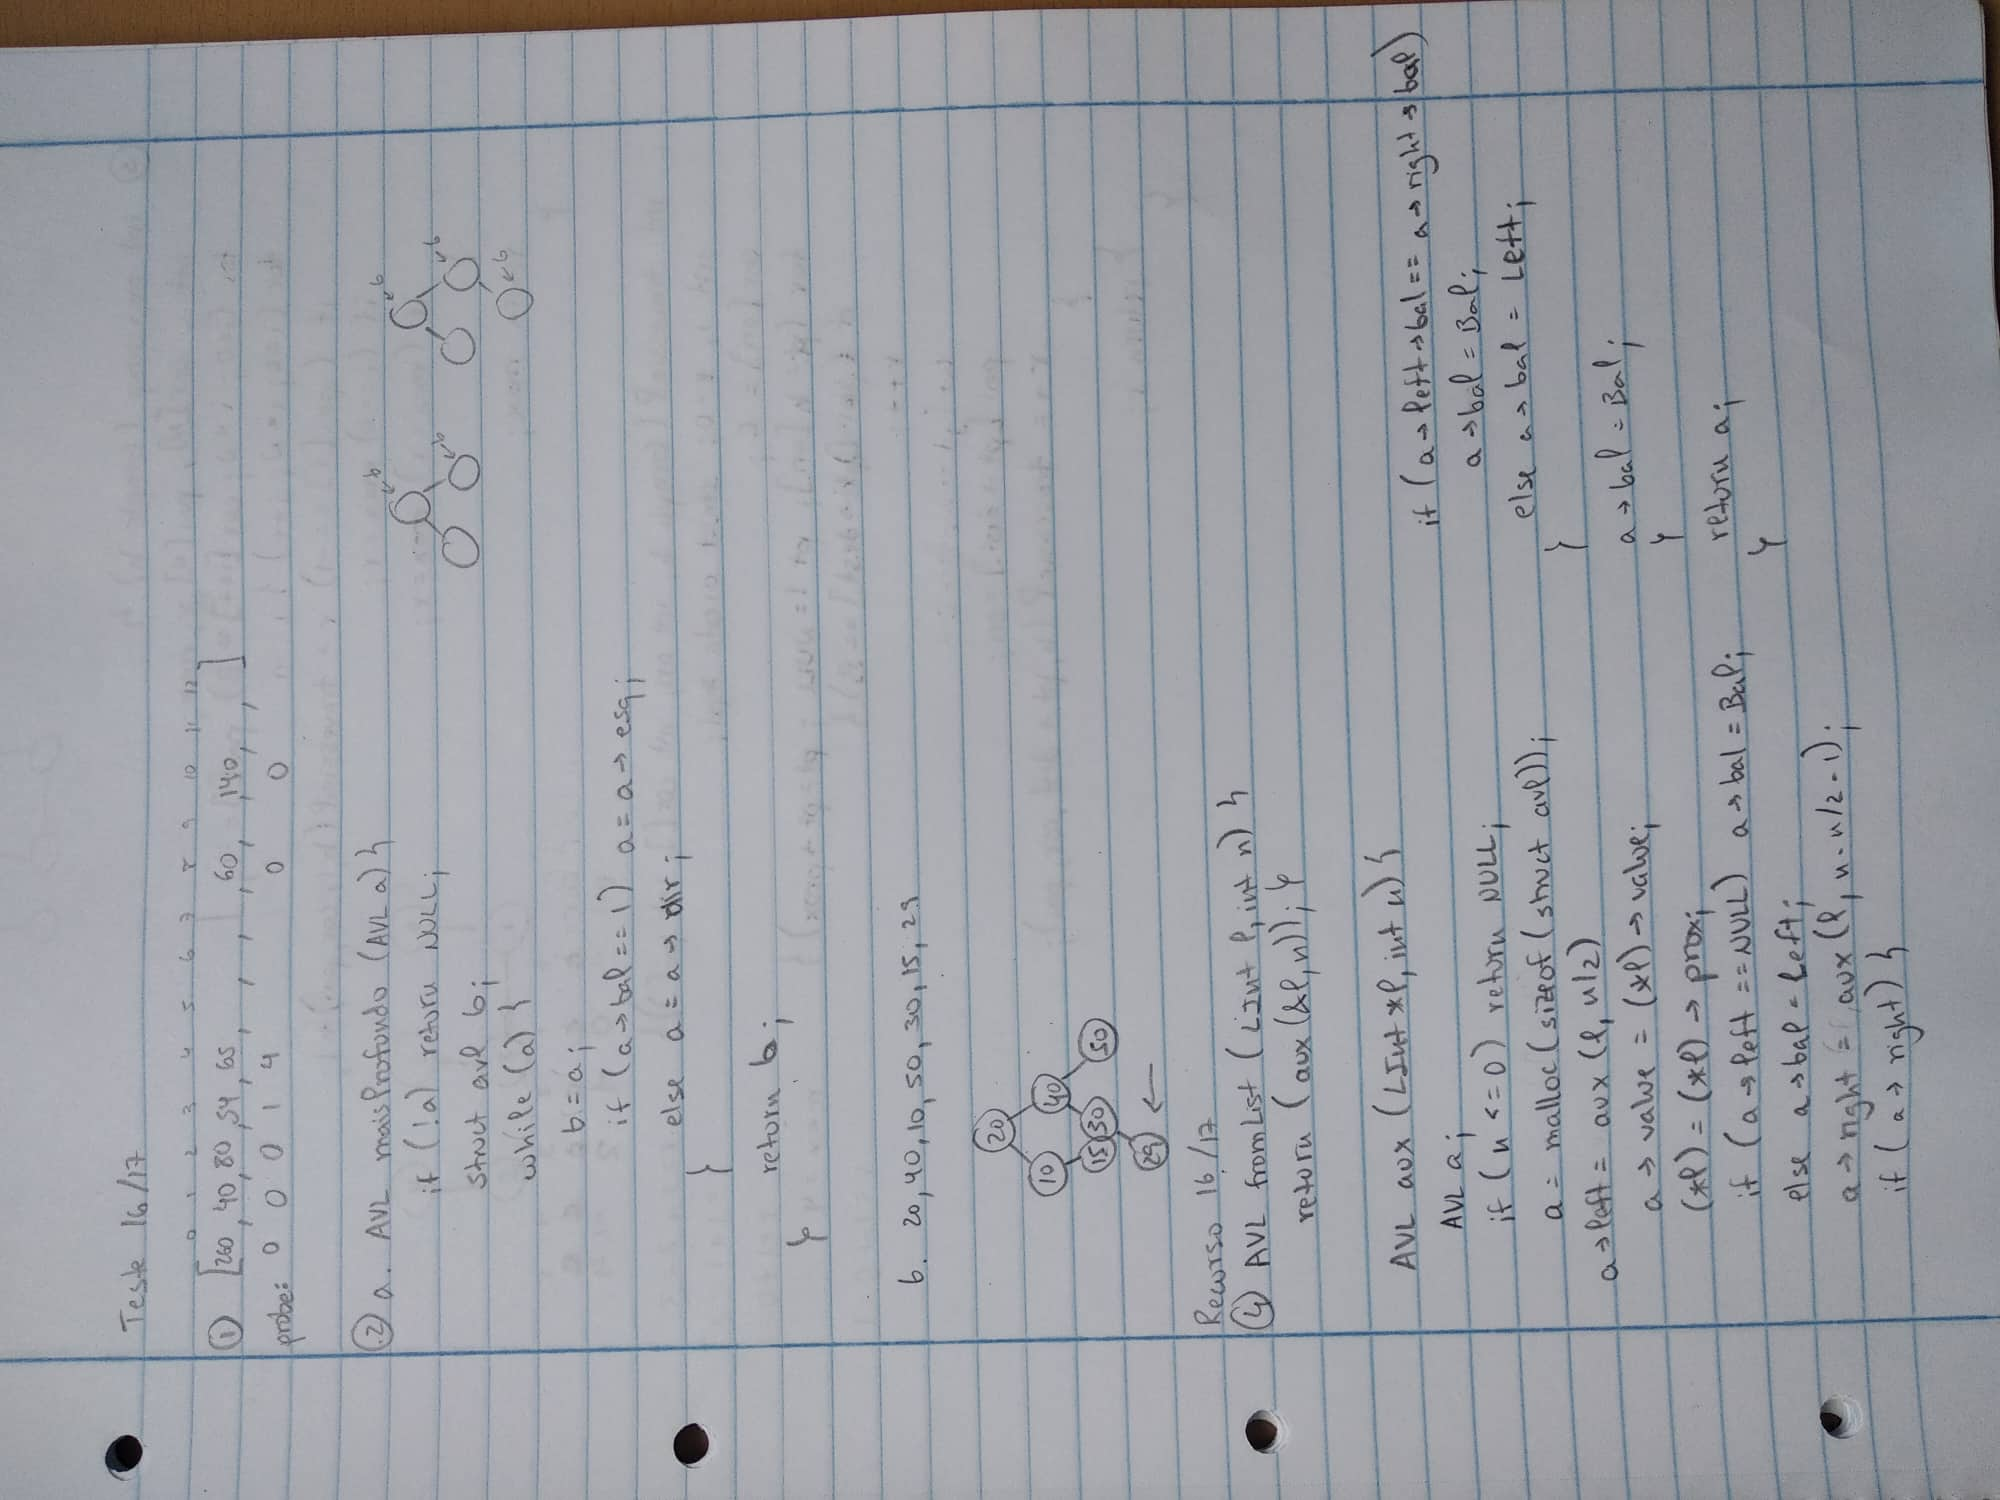 Teste 16/17
0 1 2 3 4 5 6 7 8 9 10 11 12
① [260, 40, 80, 54, 65, , , , , 60, , 140, , ]
probe: 0 0 0 1 4 0 0
② a. AVL maisProfundo (AVL a) {
if (!a) return NULL;
struct avl b;
while (a) {
b = a;
if (a→bal == 1) a = a→esq;
else a = a→dir;
}
return b;
}
b
b
b
b
b
b. 20, 40, 10, 50, 30, 15, 29
20
10 40
15 30 50
29 ←
Recurso 16/17
④ AVL fromList (LInt l, int n) {
return (aux (&l, n)); }
AVL aux (LInt *l, int n) {
AVL a;
if (n <= 0) return NULL;
a = malloc (sizeof (struct avl));
a→left = aux (l, n/2)
a→value = (*l)→value;
(*l) = (*l)→prox;
if (a→left == NULL) a→bal = Bal;
else a→bal = Left;
a→right = aux (l, n-n/2-1);
if (a→right) {
if (a→left→bal == a→right→bal)
a→bal = Bal;
else a→bal = Left;
}
a→bal = Bal;
}
return a;
}